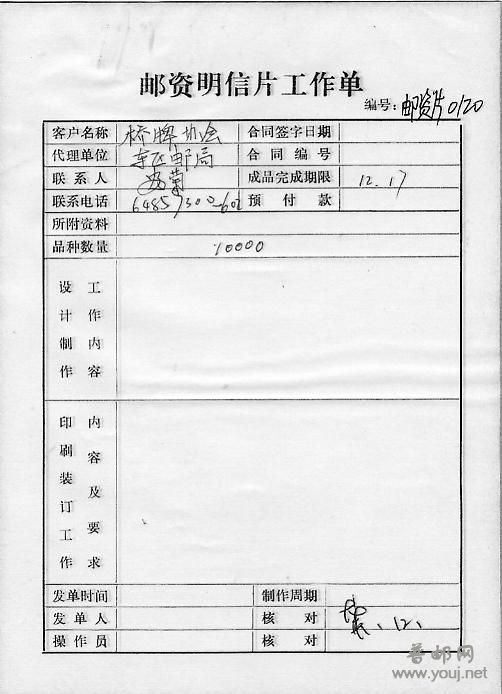 邮资明信片工作单
编号：邮资片0120
客户名称 桥牌协会 合同签字日期
代理单位 东区邮局 合同编号
联系人 成品完成期限 12.17
联系电话 64857300-602 预付款
所附资料
品种数量 10000
设计制作 工作内容
印刷装订工作 内容及要求
发单时间 制作周期
发单人 核对 12.
操作员 核对
普邮网
www.youj.net